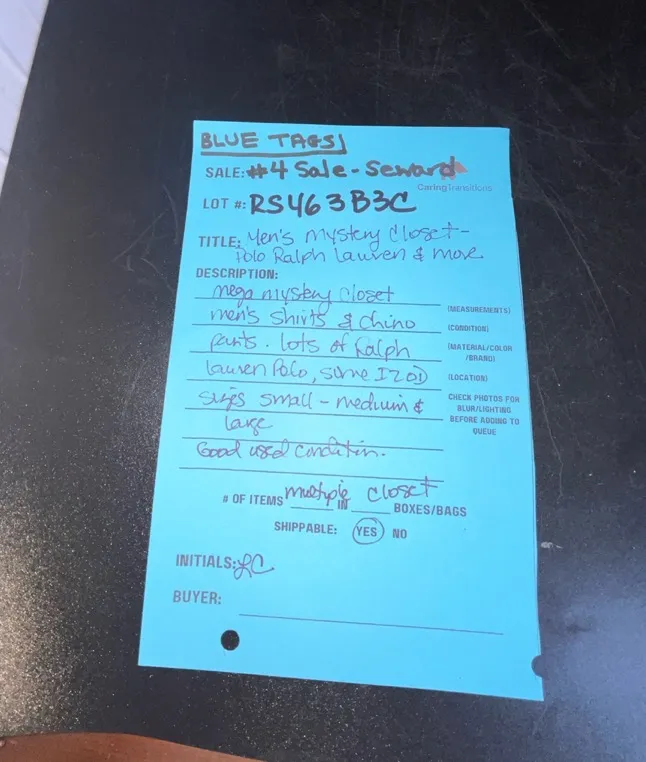 BLUE TAGS
SALE: #4 Sale - Seward
CaringTransitions
LOT #: RS463B3C
TITLE: Men's Mystery Closet -
Polo Ralph Lauren & more
DESCRIPTION:
mega mystery closet
men's shirts & chino
pants. lots of Ralph
Lauren Polo, some IZOD
sizes small - medium &
large
Good used condition.
(MEASUREMENTS)
(CONDITION)
(MATERIAL/COLOR
/BRAND)
(LOCATION)
CHECK PHOTOS FOR
BLUR/LIGHTING
BEFORE ADDING TO
QUEUE
# OF ITEMS multiple IN closet BOXES/BAGS
SHIPPABLE: YES NO
INITIALS: LC
BUYER: